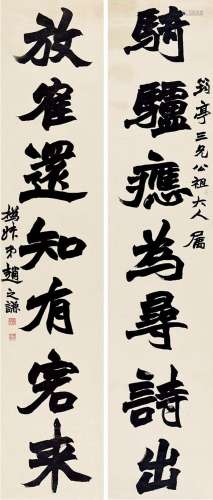 騎驢應為尋詩出
筠亭三兄公祖大人屬
放隺還知有客来
撝叔弟趙之謙